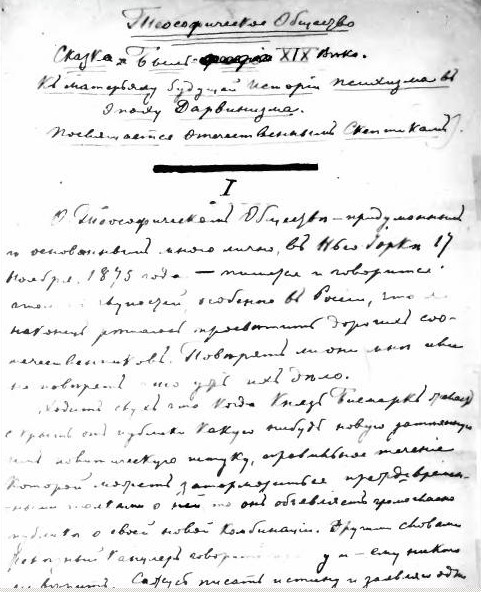 Теософическое Общество
Сказка-Быль XIX Вѣка.
Къ матерьялу будущей Исторіи психизма въ
эпоху Дарвинизма.
Посвящается отечественнымъ Скептикамъ.
I
О Теософическомъ Обществѣ – придуманный
и основанный мною лично, въ Нью Іоркѣ 17
Ноября, 1875 года — пишется и говорится
глупостей, особенно въ Россіи, что я
наконецъ рѣшилась просвѣтить дорогихъ соо-
течественниковъ. Повѣрятъ ли они мнѣ или
не повѣрятъ – это ужъ ихъ дѣло.
Ходитъ слухъ что когда Князь Бисмаркъ
скрыть отъ публики какую нибудь новую
имъ политическую штуку, правильное теченіе
которой можетъ затормозиться преждевремен-
ными толками о ней то онъ объявляетъ громогласно
публикѣ о своей новой комбинаціи. Другими словами
канцлеръ говоритъ у и – ему никто
не вѣритъ. писать истину и заявляю